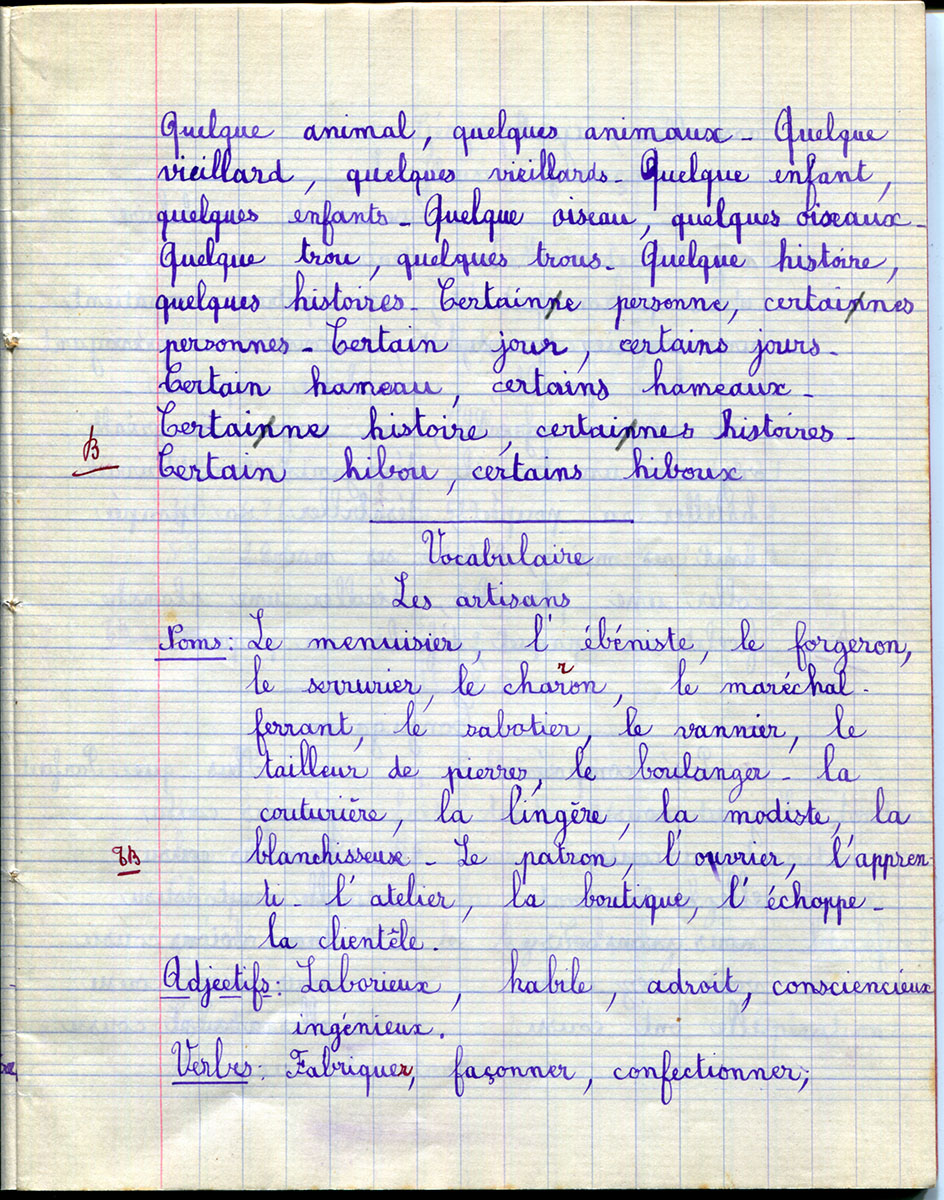 Quelque animal, quelques animaux - Quelque
vieillard, quelques vieillards - Quelque enfant,
quelques enfants - Quelque oiseau, quelques oiseaux -
Quelque trou, quelques trous - Quelque histoire,
quelques histoires - Certainne personne, certainnes
personnes - Certain jour, certains jours -
Certain hameau, certains hameaux -
Certainne histoire, certainnes histoires -
B
Certain hibou, certains hiboux
Vocabulaire
Les artisans
Noms : Le menuisier, l'ébéniste, le forgeron,
le serrurier, le charron, le maréchal-
ferrant, le sabotier, le vannier, le
tailleur de pierres, le boulanger - la
couturière, la lingère, la modiste, la
TB
blanchisseuse - Le patron, l'ouvrier, l'appren-
ti - l'atelier, la boutique, l'échoppe -
la clientèle.
Adjectifs : Laborieux, habile, adroit, consciencieux
ingénieux.
Verbes : Fabriquer, façonner, confectionner;